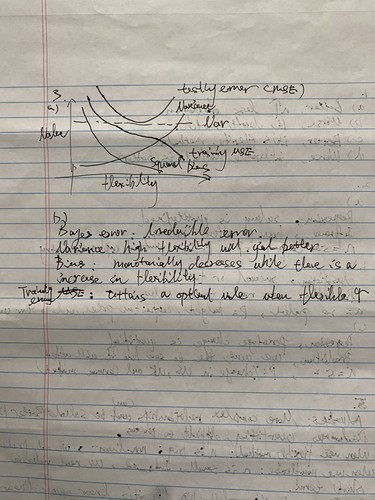 3.
testing error (MSE)
a)
Variance
Var
Value
training MSE
Squared bias
flexibility
b)
Bayes error. Irreducible error
Variance: high flexibility will yield better
Bias. monotonially decreases while there is a
increase in flexibility.
Training
error MSE: attains a optiml vale when flexible